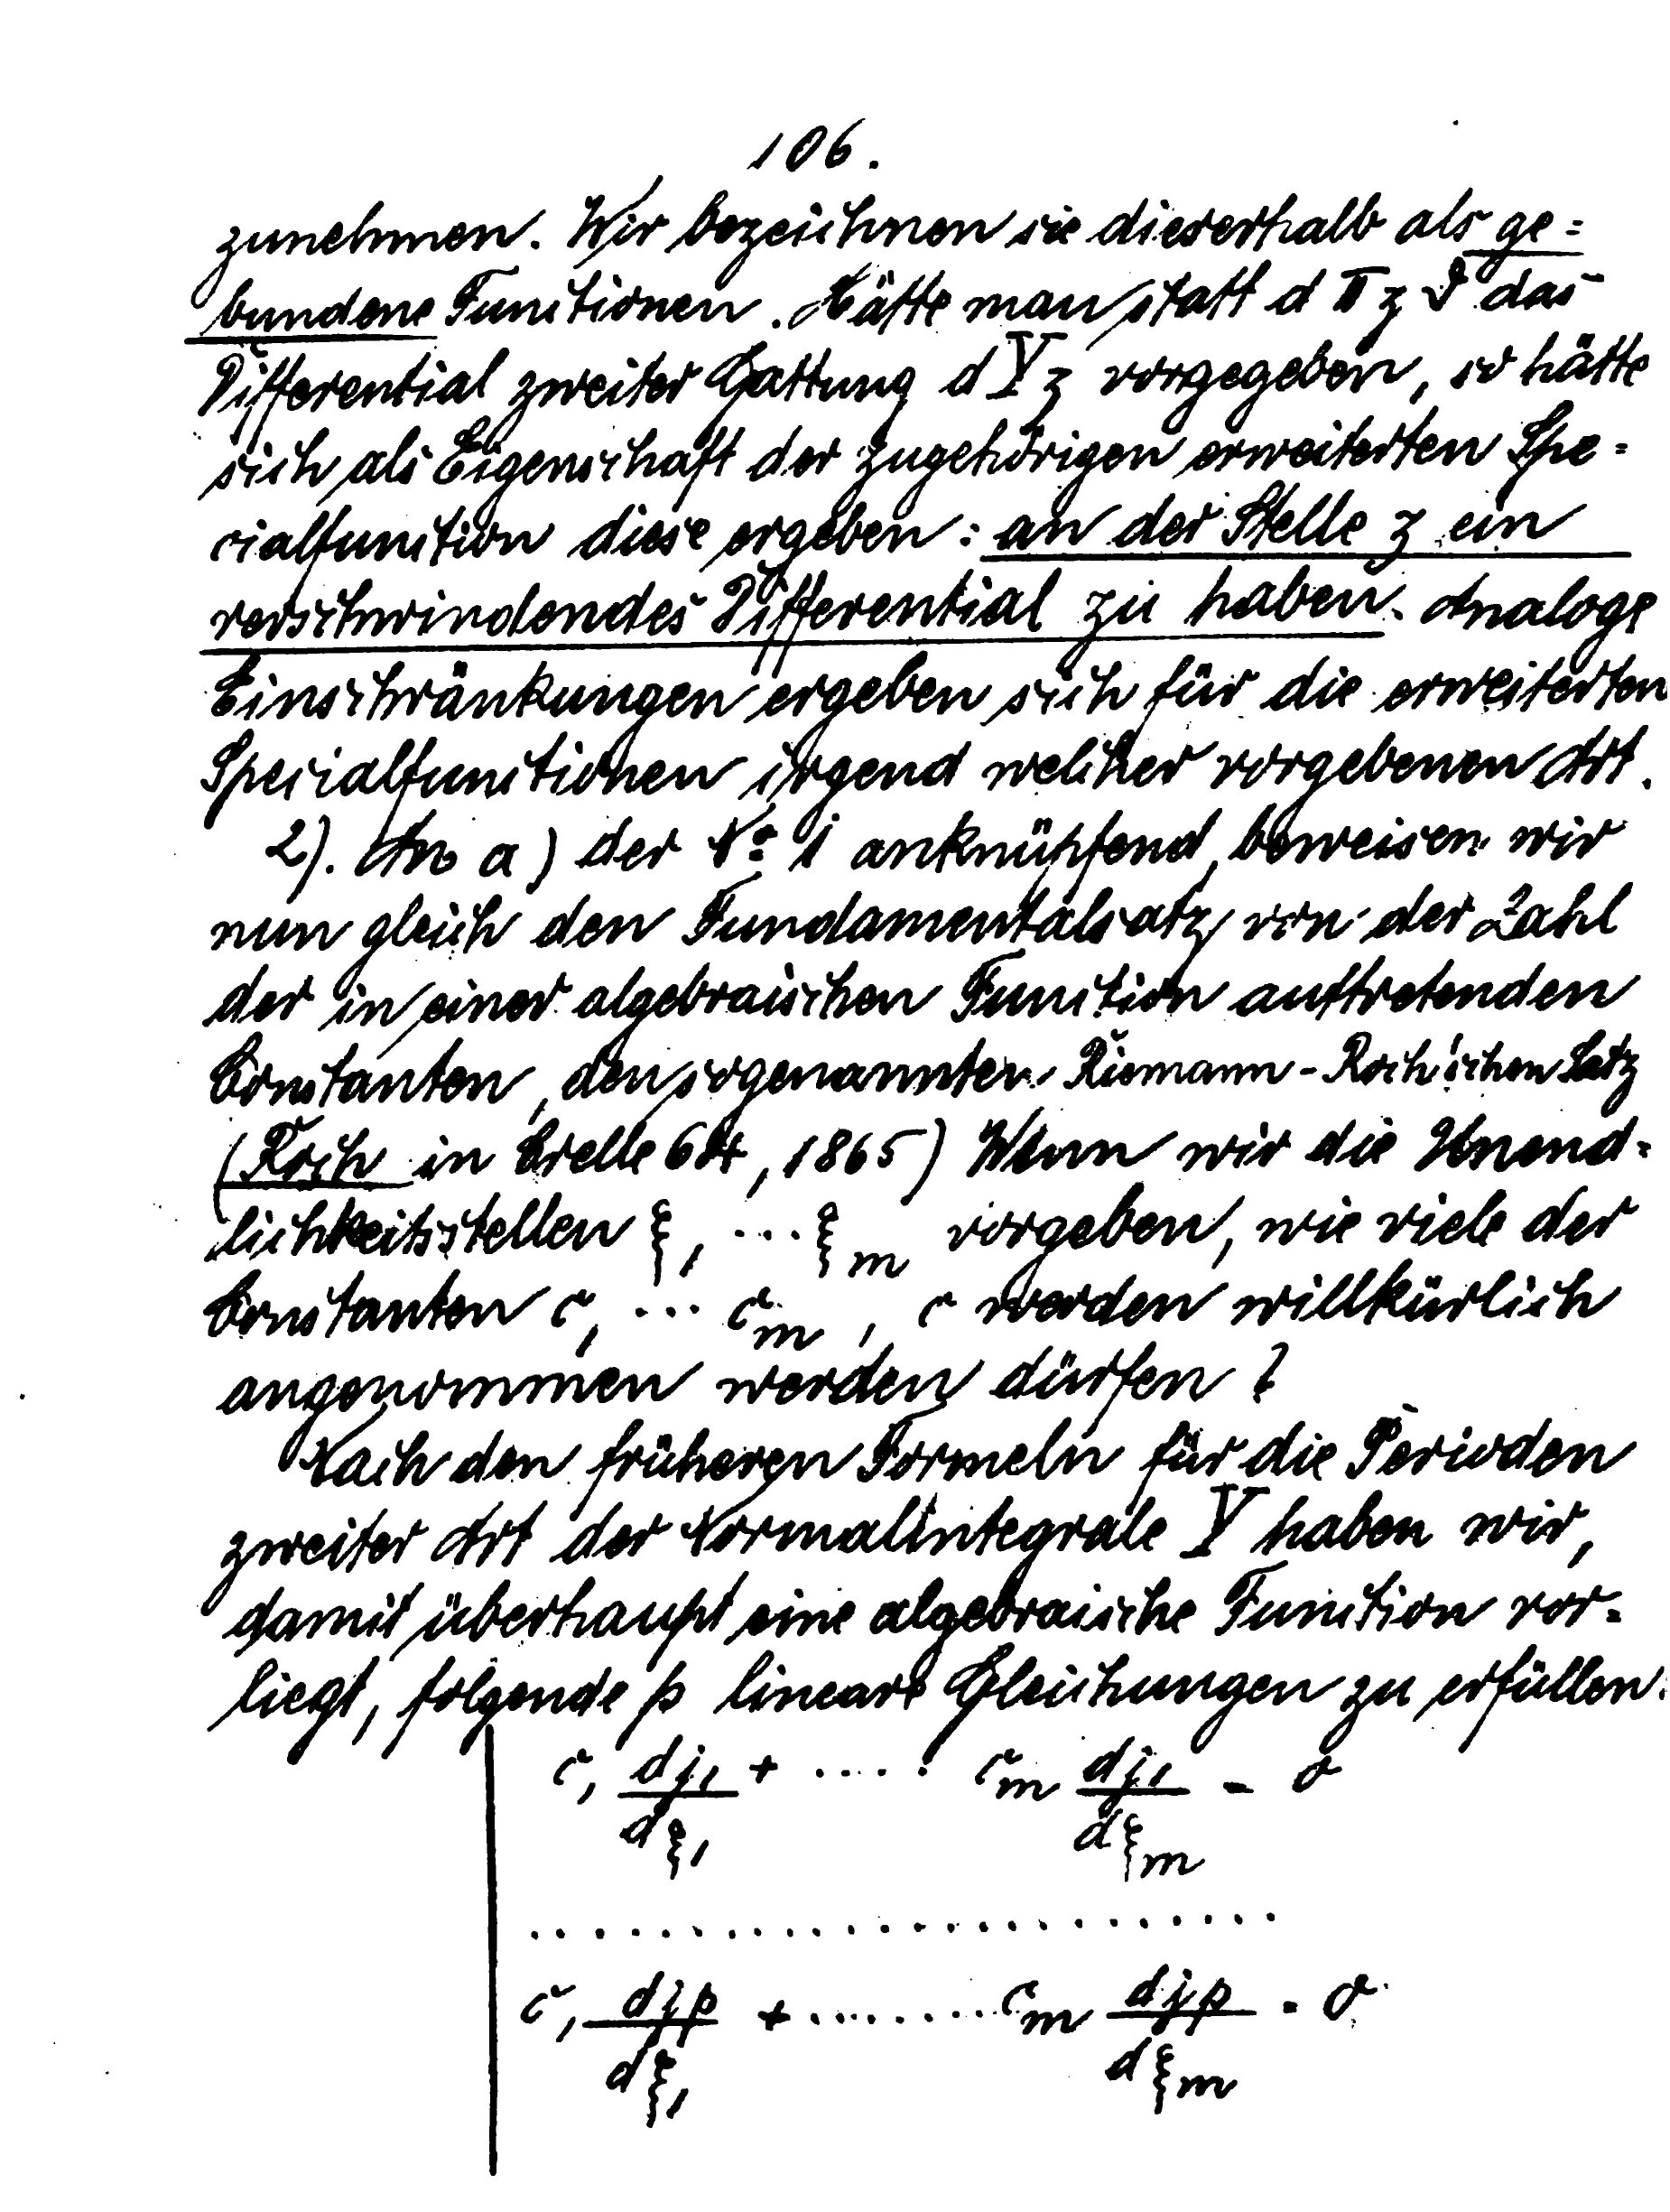 106.
zunehmen. Wir bezeichnen sie dieserhalb als ge=
bundene Functionen. Hätte man statt d Π z ϑ das
Differential zweiter Gattung d Y z vorgegeben, so hätte
sich als Eigenschaft der zugehörigen erweiterten Spe=
cialfunction diese ergeben: an der Stelle z ein
verschwindendes Differential zu haben. Analoge
Einschränkungen ergeben sich für die erweiterten
Specialfunctionen irgend welcher vorgebenen Art.
2). An a) der No 1 anknüpfend, beweisen wir
nun gleich den Fundamentalsatz von der Zahl
der in einer algebraischen Function auftretenden
Constanten, den sogenannten Riemann-Roch'schen Satz
(Roch in Crelle 64, 1865) Wenn wir die Unend=
lichkeitsstellen ξ₁ ... ξₘ vorgeben, wie viele der
Constanten c₁ ... cₘ, c werden willkürlich
angenommen werden dürfen?
Nach den früheren Formeln für die Perioden
zweiter Art der Normalintegrale Y haben wir,
damit überhaupt eine algebraische Function vor=
liegt, folgende p lineare Gleichungen zu erfüllen.
c₁ dj₁/dξ₁ + .... cₘ dj₁/dξₘ = 0
.......................
c₁ djₚ/dξ₁ + ........ cₘ djₚ/dξₘ = 0